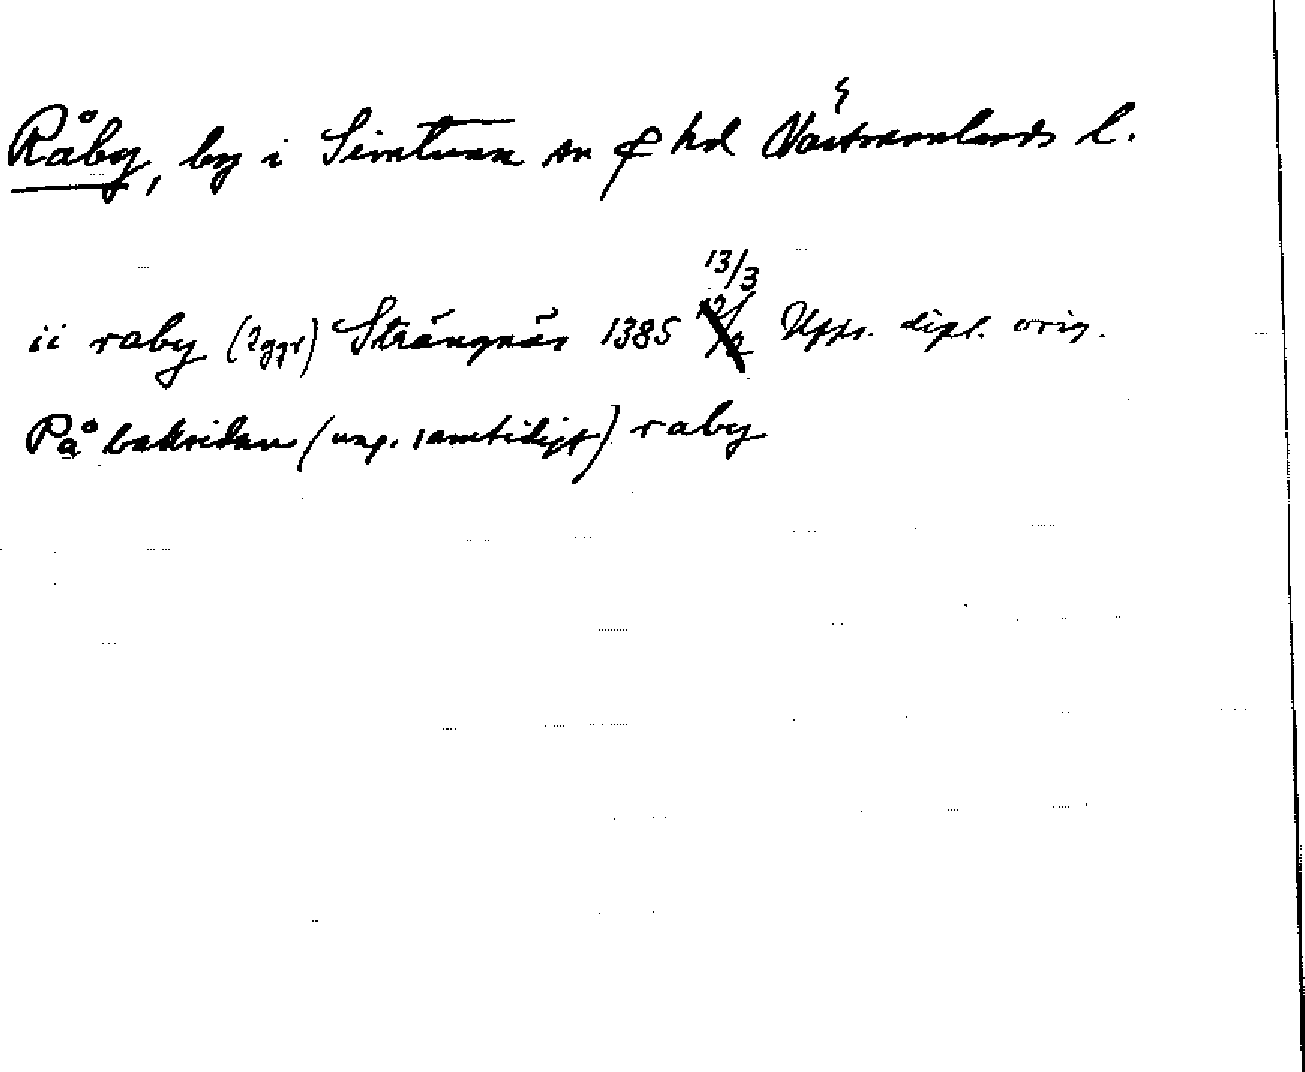 Råby, by i Simtuna sn o hd Västmanlands l.
ii raby (2ggr) Strängnäs 1385 13/3 Upps. dipl. orig.
På baksidan (ung. samtidigt) raby